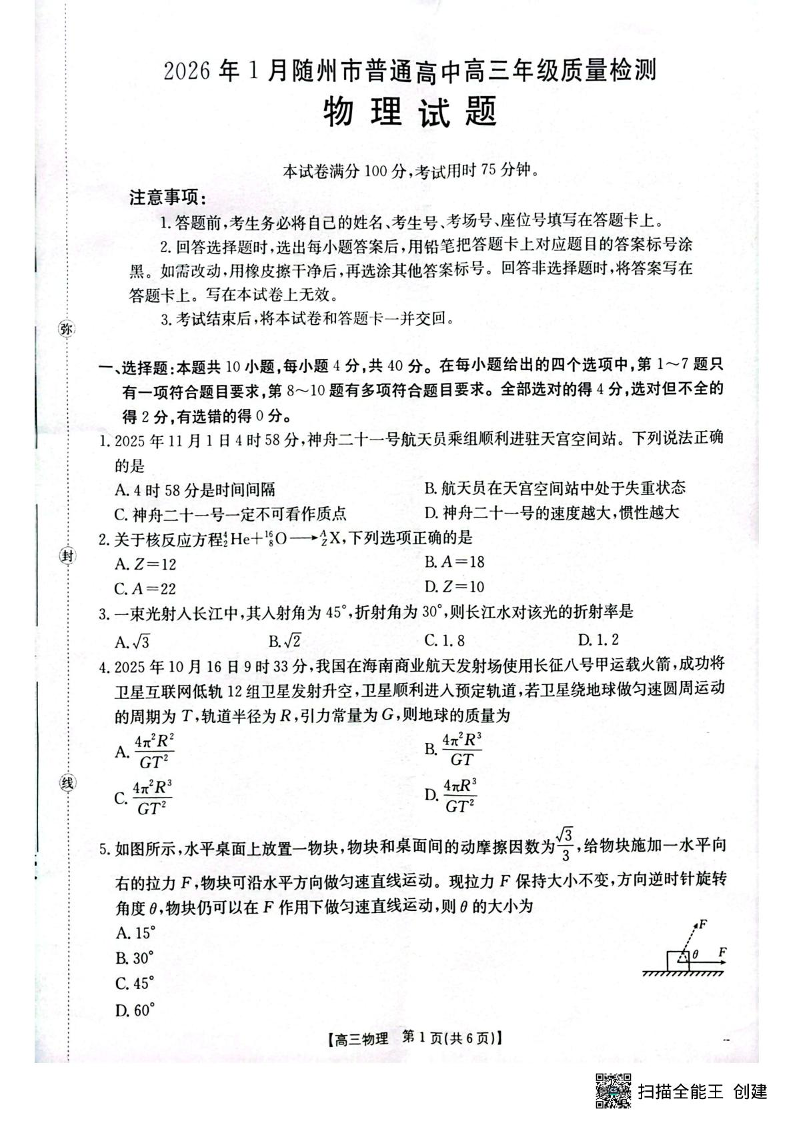 2026年1月随州市普通高中高三年级质量检测
物理试题
本试卷满分100分,考试用时75分钟。
注意事项:
1.答题前,考生务必将自己的姓名、考生号、考场号、座位号填写在答题卡上。
2.回答选择题时,选出每小题答案后,用铅笔把答题卡上对应题目的答案标号涂
黑。如需改动,用橡皮擦干净后,再选涂其他答案标号。回答非选择题时,将答案写在
答题卡上。写在本试卷上无效。
3.考试结束后,将本试卷和答题卡一并交回。
一、选择题:本题共10小题,每小题4分,共40分。在每小题给出的四个选项中,第1～7题只
有一项符合题目要求,第8～10题有多项符合题目要求。全部选对的得4分,选对但不全的
得2分,有选错的得0分。
1.2025年11月1日4时58分,神舟二十一号航天员乘组顺利进驻天宫空间站。下列说法正确
的是
A.4时58分是时间间隔 B.航天员在天宫空间站中处于失重状态
C.神舟二十一号一定不可看作质点 D.神舟二十一号的速度越大,惯性越大
2.关于核反应方程⁴₂He+¹⁶₈O⟶ᴬ_ZX,下列选项正确的是
A.Z=12 B.A=18
C.A=22 D.Z=10
3.一束光射入长江中,其入射角为45°,折射角为30°,则长江水对该光的折射率是
A.√3 B.√2 C.1.8 D.1.2
4.2025年10月16日9时33分,我国在海南商业航天发射场使用长征八号甲运载火箭,成功将
卫星互联网低轨12组卫星发射升空,卫星顺利进入预定轨道,若卫星绕地球做匀速圆周运动
的周期为T,轨道半径为R,引力常量为G,则地球的质量为
A.4π²R²/GT² B.4π²R³/GT
C.4π²R³/GT² D.4πR³/GT²
5.如图所示,水平桌面上放置一物块,物块和桌面间的动摩擦因数为√3/3,给物块施加一水平向
右的拉力F,物块可沿水平方向做匀速直线运动。现拉力F保持大小不变,方向逆时针旋转
角度θ,物块仍可以在F作用下做匀速直线运动,则θ的大小为
A.15°
B.30°
C.45°
D.60°
F
θ F
【高三物理 第1页(共6页)】
弥
封
线
扫描全能王 创建